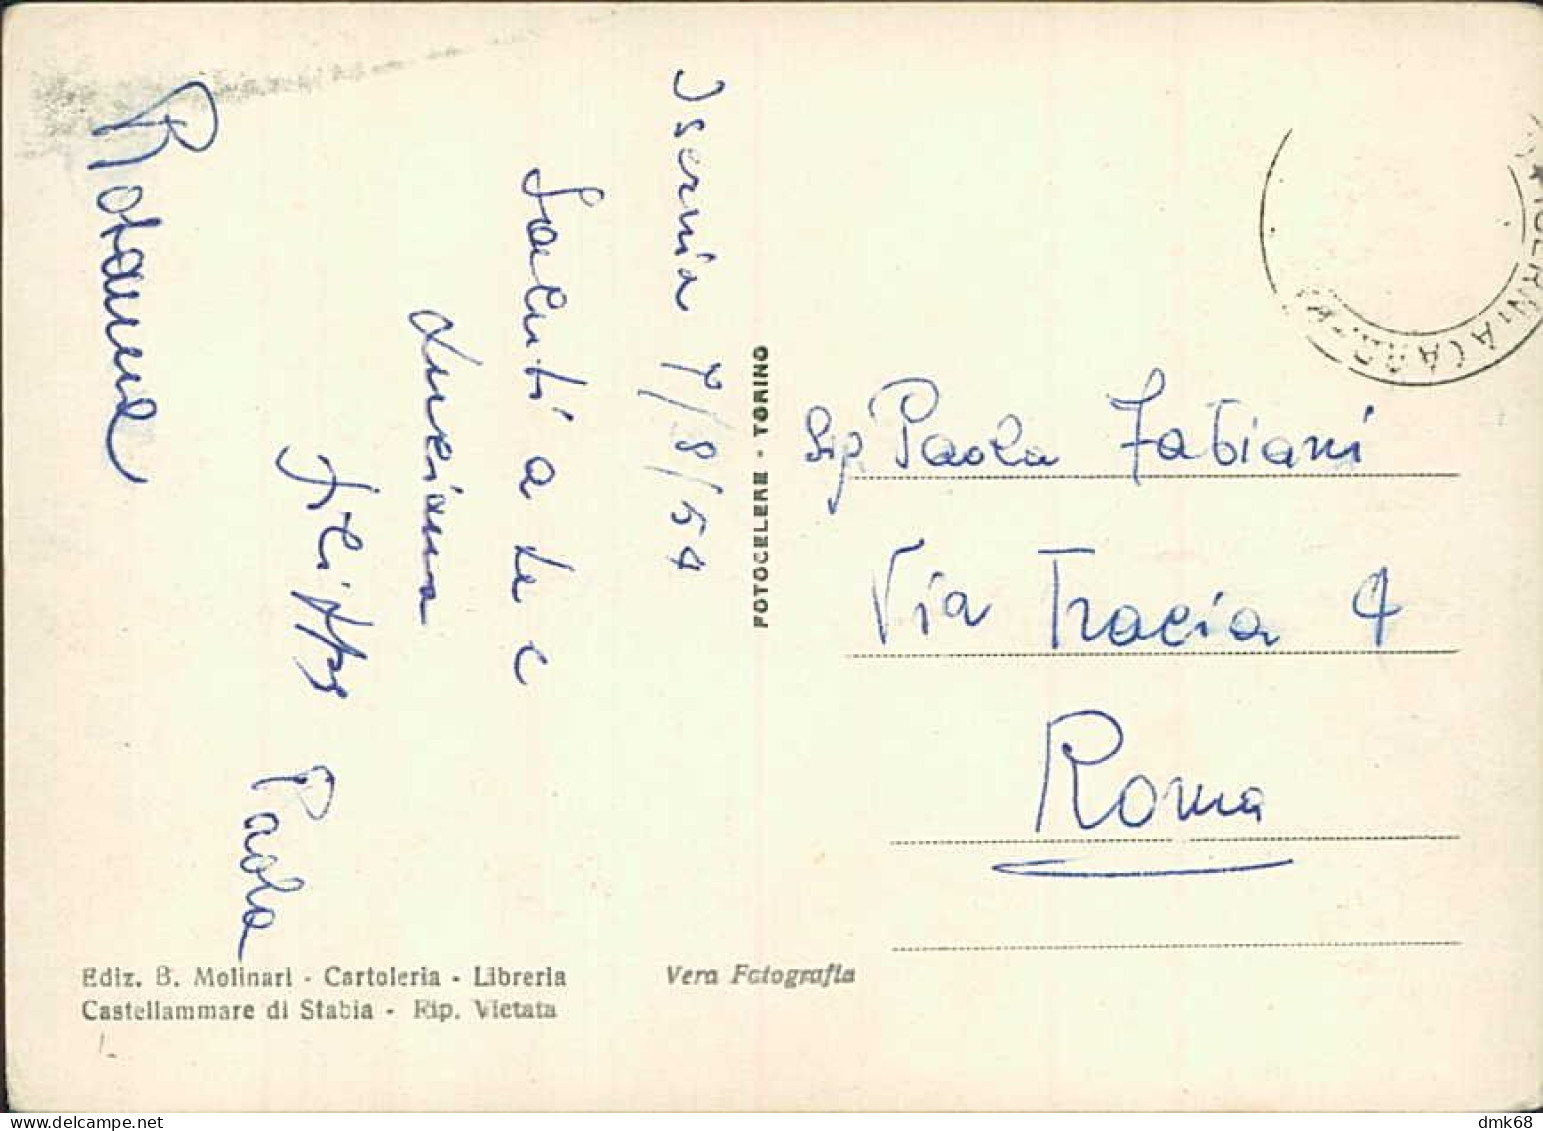 Isernia 7/8/54
Saluti a te e
Luciana
Paola
FOTOCELERE - TORINO
ISERNIA (
Sig. Paola Fabiani
Via Tracia 4
Roma
Ediz. B. Molinari - Cartoleria - Libreria
Castellammare di Stabia - Rip. Vietata
Vera Fotografia
www.delcampe.net
dmk68